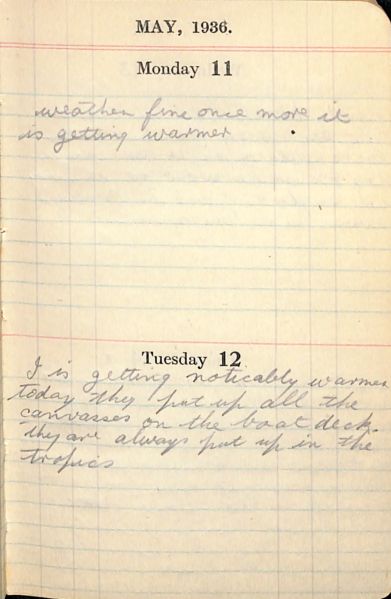 MAY, 1936.
Monday 11
weather fine once more it
is getting warmer
Tuesday 12
I is getting noticably warmer
today they put up all the
canvasses on the boat deck.
they are always put up in the
tropics